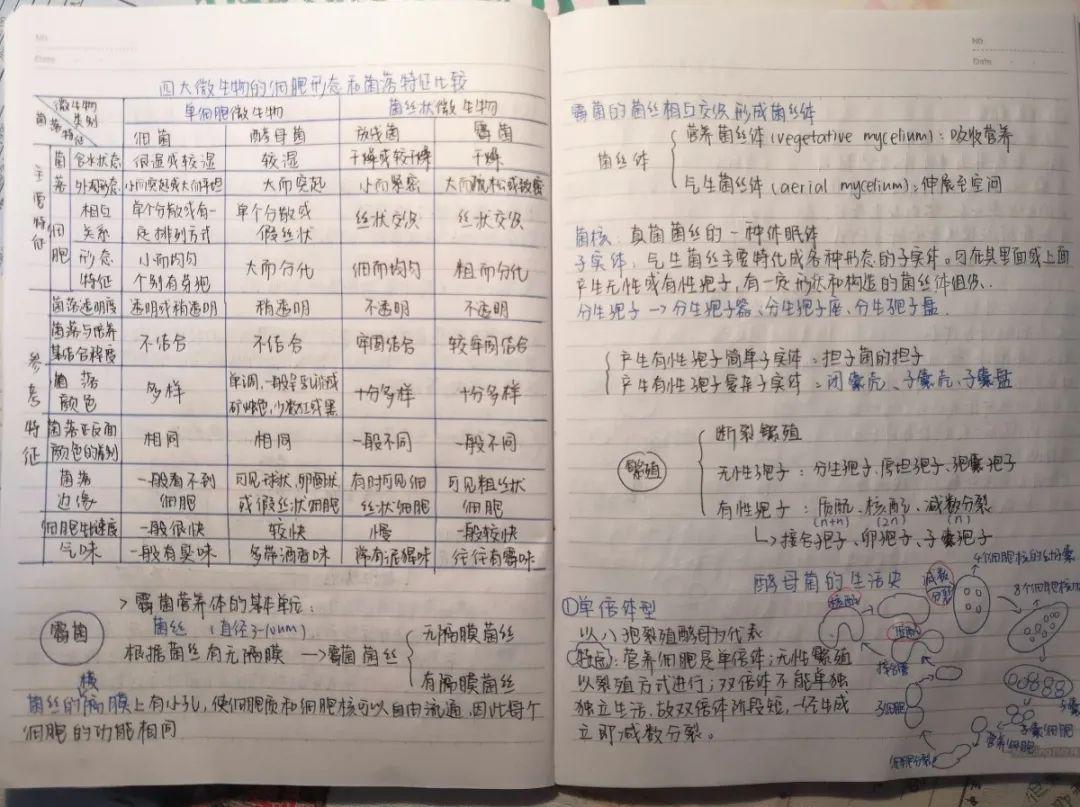 NO.
Date
四大微生物的细胞形态和菌落特征比较
微生物类别 单细胞微生物 菌丝状微生物
菌落特征 细菌 酵母菌 放线菌 霉菌
主要特征 菌落 含水状态 很湿或较湿 较湿 干燥或较干燥 干燥
外观形态 小而突起或大而平坦 大而突起 小而紧密 大而疏松或致密
细胞 相互关系 单个分散或有一定排列方式 单个分散或假丝状 丝状交织 丝状交织
形态特征 小而均匀 个别有芽孢 大而分化 细而均匀 粗而分化
参考特征 菌落透明度 透明或稍透明 稍透明 不透明 不透明
菌落与培养基结合程度 不结合 不结合 牢固结合 较牢固结合
菌落颜色 多样 单调,一般呈乳脂或矿烛色,少数红或黑 十分多样 十分多样
菌落正反面颜色的差别 相同 相同 一般不同 一般不同
菌落边缘 一般看不到细胞 可见球状,卵圆状或假丝状细胞 有时可见细丝状细胞 可见粗丝状细胞
细胞生长速度 一般很快 较快 慢 一般较快
气味 一般有臭味 多带酒香味 常有泥腥味 往往有霉味
霉菌
> 霉菌营养体的基本单位:
菌丝 (直径3-10um)
根据菌丝有无隔膜 → 霉菌菌丝
无隔膜菌丝
有隔膜菌丝
横
菌丝的隔膜上有小孔,使细胞质和细胞核可以自由流通,因此每个
细胞的功能相同
NO.
Date
霉菌的菌丝相互交织形成菌丝体
菌丝体
营养菌丝体(vegetative mycelium):吸收营养
气生菌丝体(aerial mycelium):伸展至空间
菌核:真菌菌丝的一种休眠体
子实体:气生菌丝主要特化成各种形态的子实体。因在其里面或上面
产生无性或有性孢子,有一定形状和构造的菌丝体组织.
分生孢子 → 分生孢子器、分生孢子座、分生孢子盘.
产生有性孢子简单子实体:担子菌的担子
产生有性孢子复杂子实体:闭囊壳、子囊壳、子囊盘
繁殖
断裂繁殖
无性孢子:分生孢子、厚垣孢子、孢囊孢子
有性孢子:质配、核配、减数分裂
(n+n) (2n) (n)
↳接合孢子、卵孢子、子囊孢子
酵母菌的生活史
①单倍体型
以八孢裂殖酵母为代表
特点:营养细胞是单倍体;无性繁殖
以裂殖方式进行;双倍体不能单独
独立生活,故双倍体阶段短,一经生成
立即减数分裂。
核配
减数分裂
4个细胞核的幼囊
质配
接合管
子细胞
细胞分裂
营养细胞
子囊